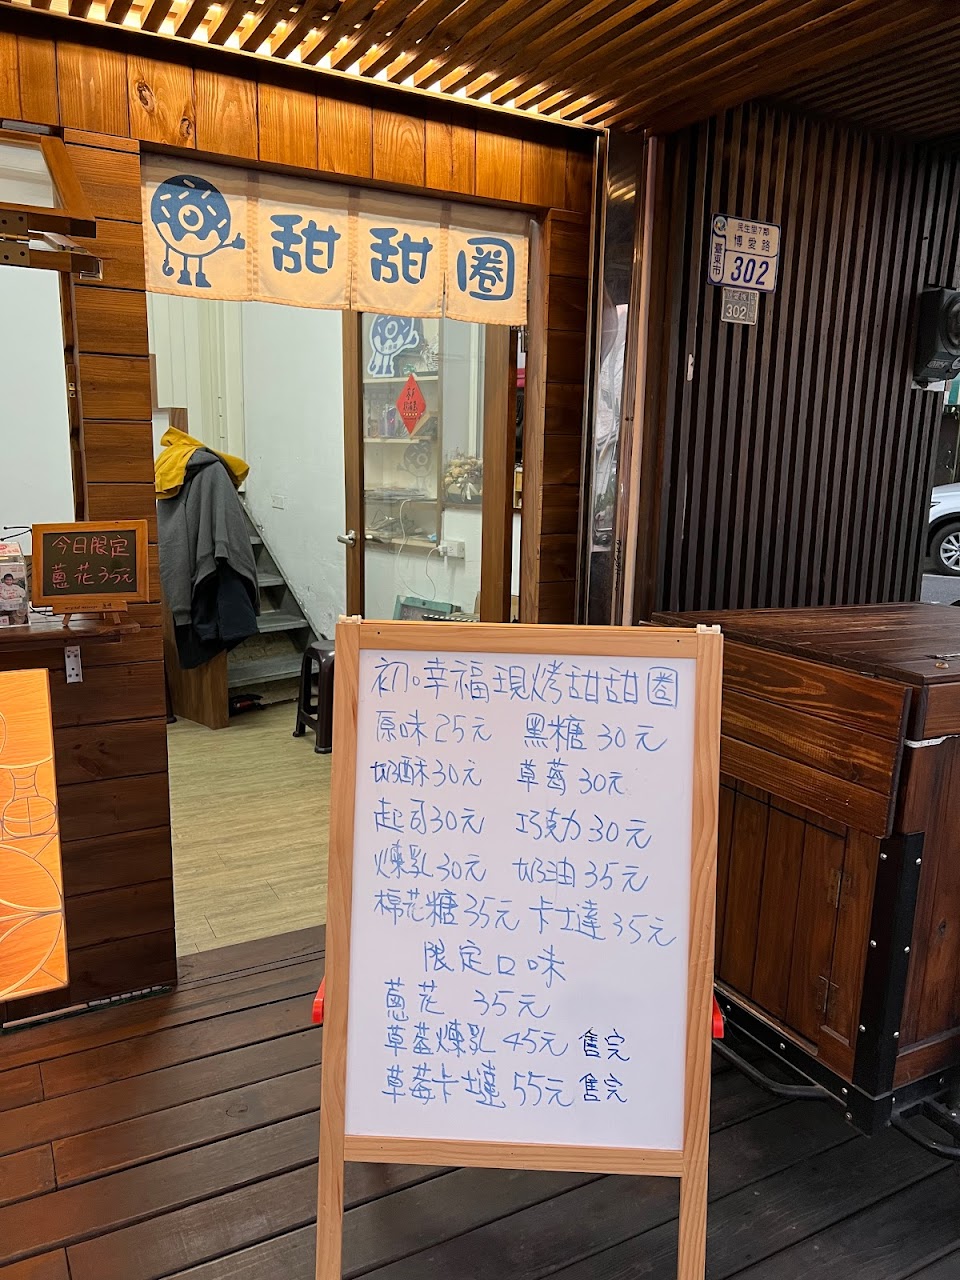 甜甜圈
民生里7鄰
博愛路
臺東市
302
302
今日限定
蔥花35元
初。幸福現烤甜甜圈
原味25元 黑糖30元
奶酥30元 草莓30元
起司30元 巧克力30元
煉乳30元 奶油35元
棉花糖35元 卡士達35元
限定口味
蔥花 35元
草莓煉乳 45元 售完
草莓卡士達 55元 售完